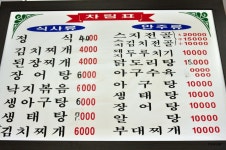 차림표
식사류
안주류
정식 4000
김치찌개 4000
된장찌개 4000
장어탕 6000
낙지볶음 6000
생아구탕 6000
생태탕 6000
김치찌개 6000
스지전골 20000
닭도리탕 15.000
아구수육
아구탕 10000
생태탕 10000
장어탕 10000
알탕 10000
부대찌개 10000